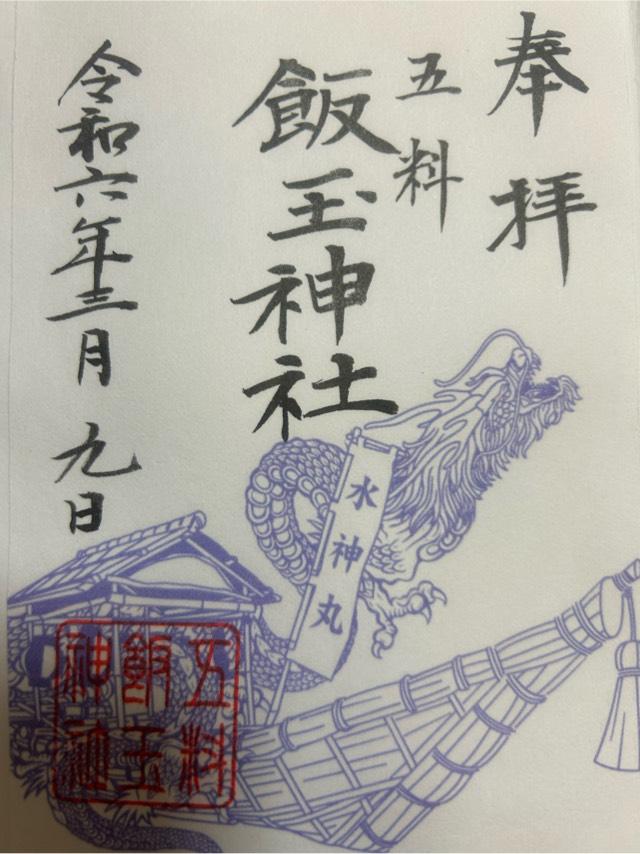 奉拝
五料
飯玉神社
令和六年三月九日
水神丸
五料
飯玉
神社